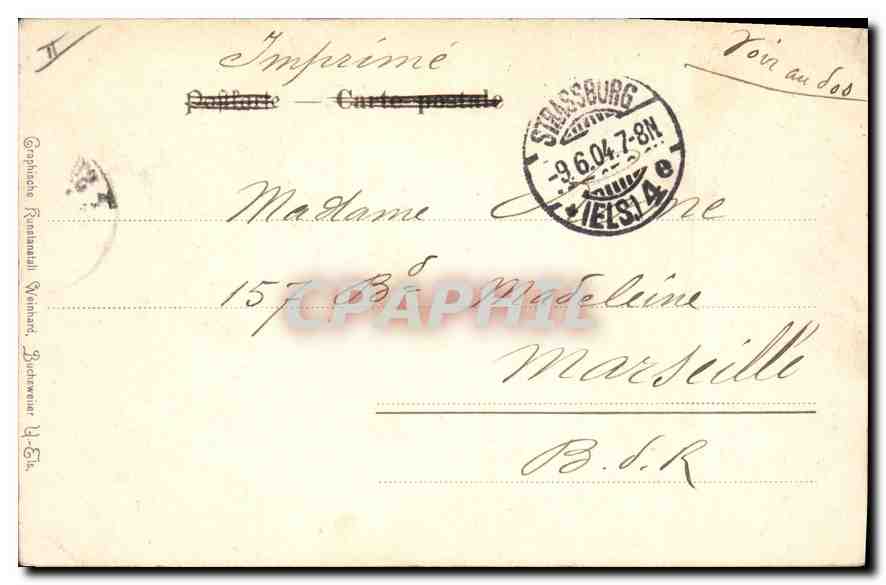 II
Imprimé
Voir au dos
Postkarte — Carte postale
STRASSBURG
-9.6.04.7-8N
*(ELS.) 4 e
Madame
157 Bd Madeleine
Marseille
B.d.R
Graphische Kunstanstalt Weinhard, Buchsweiler U-Els.
CPAPHIL